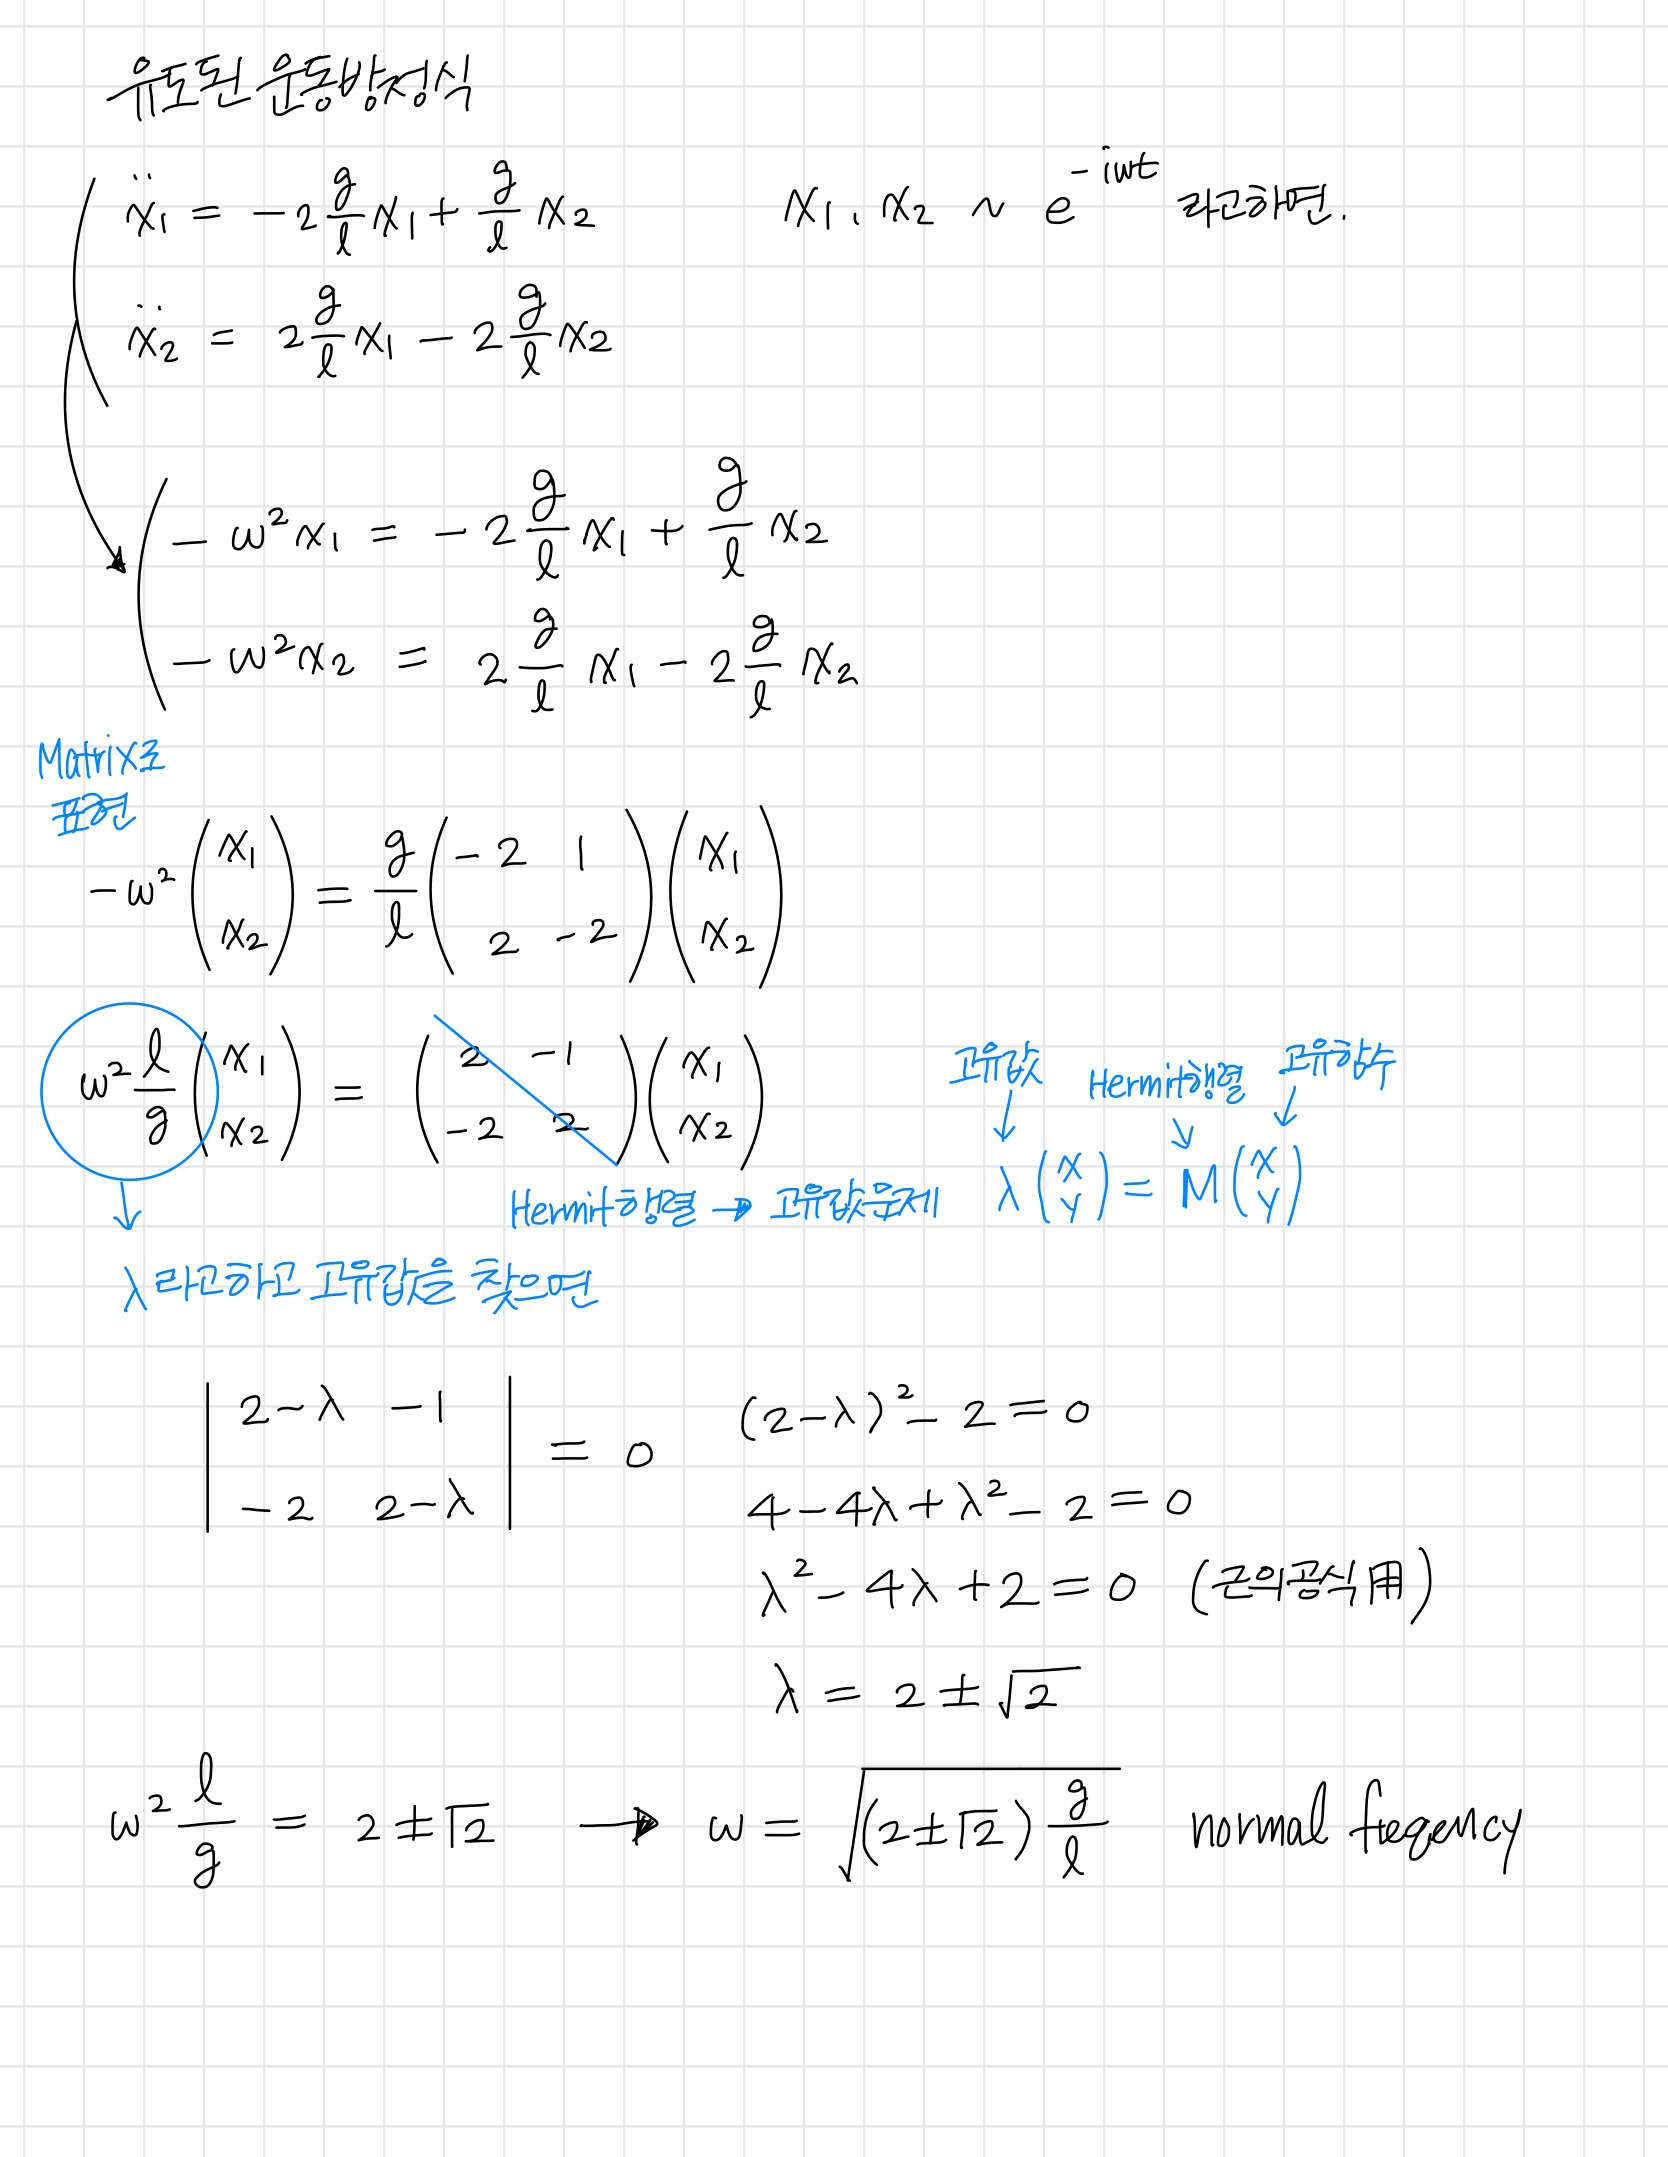 유도된 운동방정식
ẍ₁ = -2 g/l x₁ + g/l x₂    x₁, x₂ ~ e^(-iωt) 라고하면.
ẍ₂ = 2 g/l x₁ - 2 g/l x₂
-ω² x₁ = -2 g/l x₁ + g/l x₂
-ω² x₂ = 2 g/l x₁ - 2 g/l x₂
Matrix로
표현
-ω² (x₁ x₂) = g/l (-2 1 2 -2) (x₁ x₂)
ω² l/g (x₁ x₂) = (2 -1 -2 2) (x₁ x₂)
고유값 Hermit행렬 고유함수
λ (x y) = M (x y)
Hermit행렬 → 고유값문제
λ 라고하고 고유값을 찾으면
|2-λ -1 -2 2-λ| = 0
(2-λ)² - 2 = 0
4 - 4λ + λ² - 2 = 0
λ² - 4λ + 2 = 0 (근의공식用)
λ = 2 ± √2
ω² l/g = 2 ± √2 → ω = √((2±√2) g/l) normal freqency